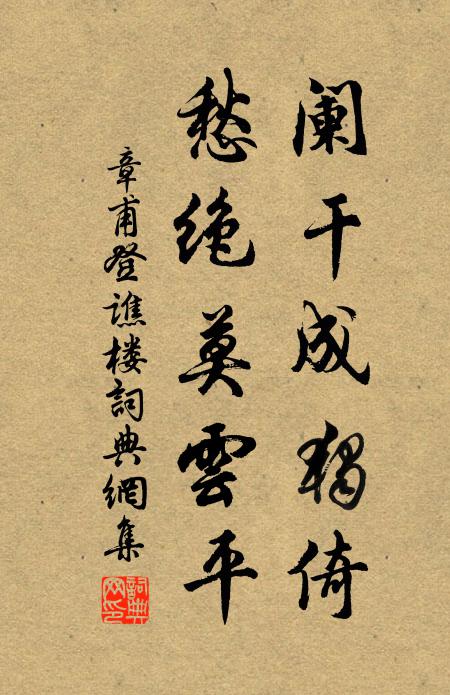 阑干成獨倚
愁绝莫雲平
章甫登譙楼詞典網集
詞典
网印